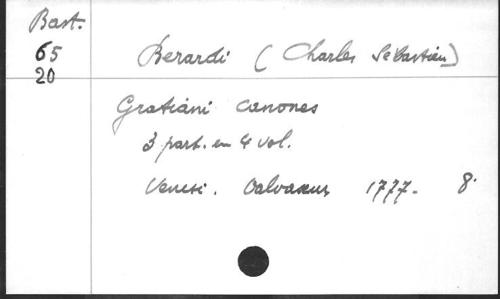 Bast.
65
20
Berardi (Charles Sébastien)
Gratiani canones
3 part. en 4 vol.
1777. 8°